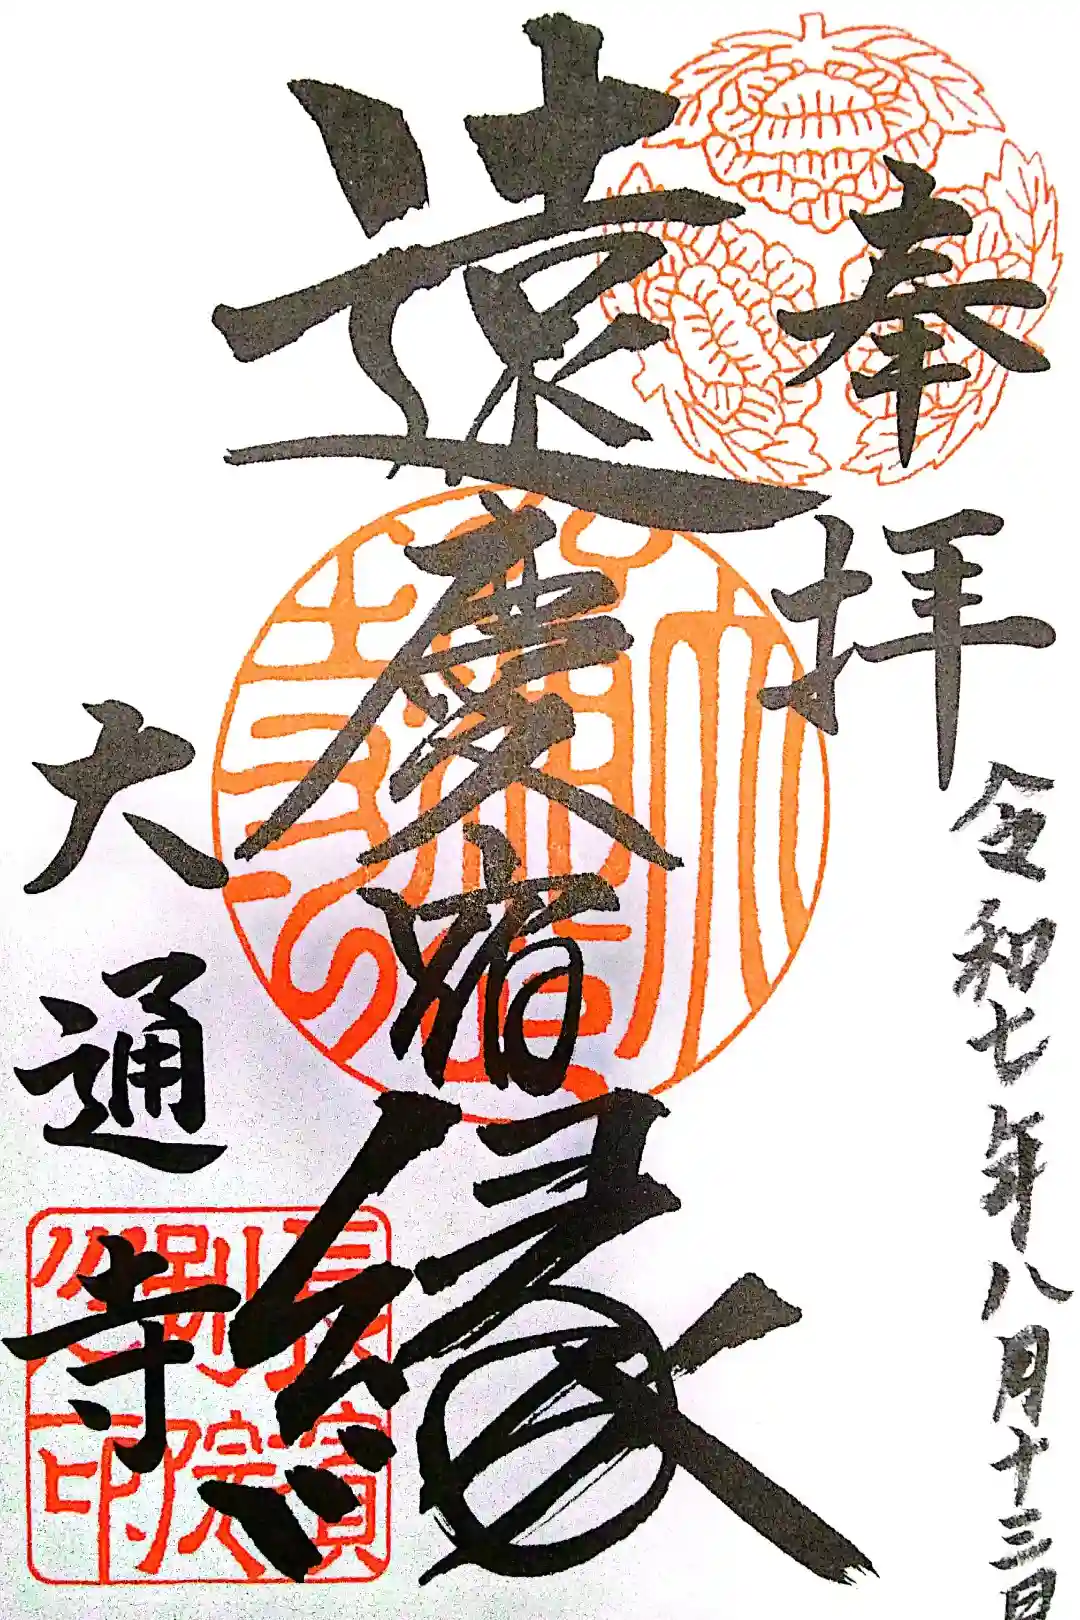 奉拝
令和七年八月十三日
遠慶宿縁
大通寺
長浜別院之印